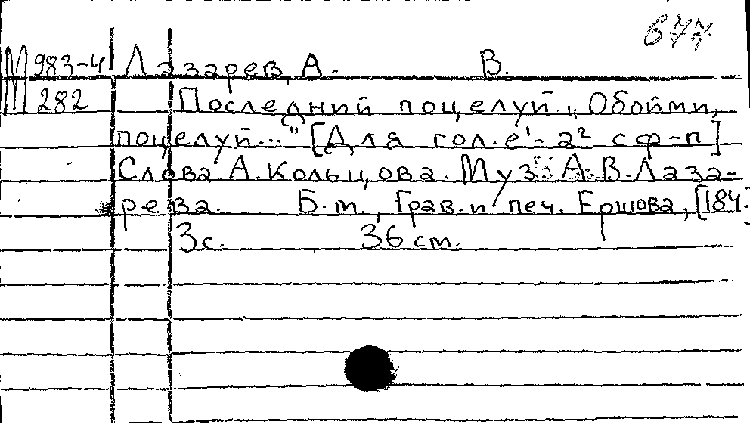 677
М 983-4 Лазарев, А. В.
282 Последний поцелуй. „Обойми,
поцелуй..." [Для гол. е¹- а² с ф-п]
Слова А. Кольцова. Муз. А. В. Лаза-
рева. Б.м., Грав. и печ. Ершова, [184.
3 с. 36 см.